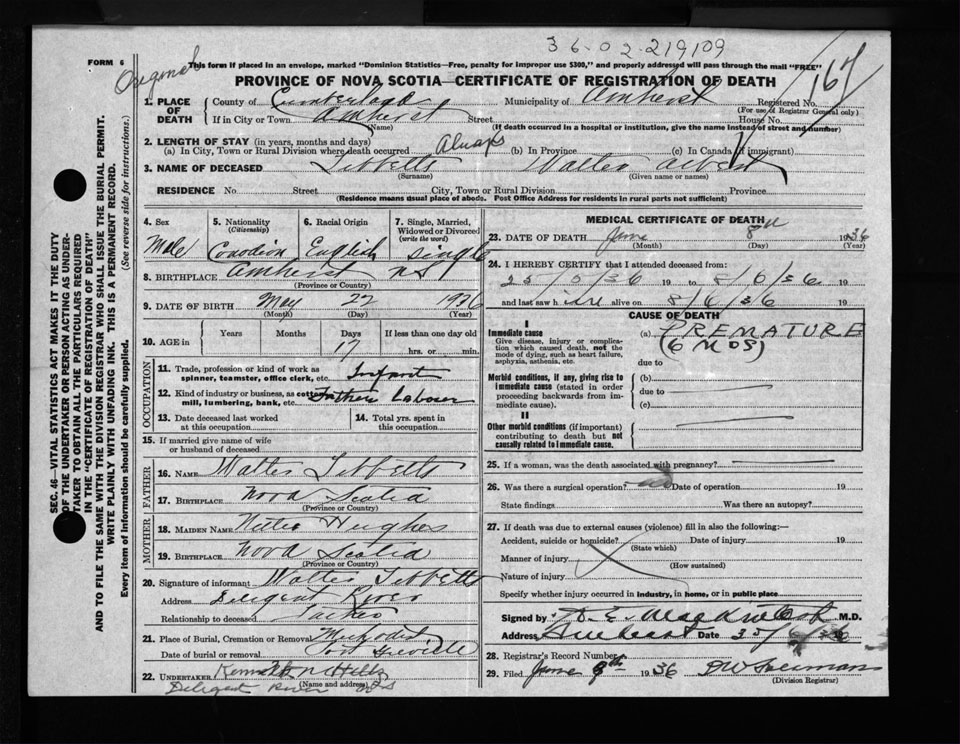 36-02-219109
FORM 6
Original
This form if placed in an envelope, marked "Dominion Statistics—Free, penalty for improper use $300," and properly addressed will pass through the mail "FREE"
167
PROVINCE OF NOVA SCOTIA—CERTIFICATE OF REGISTRATION OF DEATH
1. PLACE OF DEATH
County of Cumberland Municipality of Amherst Registered No.
(For use of Registrar General only)
If in City or Town Amherst Street House No.
(Name) (If death occurred in a hospital or institution, give the name instead of street and number)
2. LENGTH OF STAY (in years, months and days)
(a) In City, Town or Rural Division where death occurred Always (b) In Province (c) In Canada (if immigrant)
3. NAME OF DECEASED Tibbetts Walter Albert
(Surname) (Given name or names)
RESIDENCE No Street City, Town or Rural Division Province
(Residence means usual place of abode. Post Office Address for residents in rural parts not sufficient)
4. Sex 5. Nationality (Citizenship) 6. Racial Origin 7. Single, Married, Widowed or Divorced (write the word)
Male Canadian English Single
8. BIRTHPLACE Amherst NS
(Province or Country)
9. DATE OF BIRTH May 22 1936
(Month) (Day) (Year)
10. AGE in Years Months Days If less than one day old
17 hrs. or min.
OCCUPATION
11. Trade, profession or kind of work as spinner, teamster, office clerk, etc. Infant
12. Kind of industry or business, as cotton mill, lumbering, bank, etc. Father Laborer
13. Date deceased last worked at this occupation 14. Total yrs. spent in this occupation
15. If married give name of wife or husband of deceased
FATHER
16. NAME Walter Tibbetts
17. BIRTHPLACE Nova Scotia
(Province or Country)
MOTHER
18. MAIDEN NAME Hughes
19. BIRTHPLACE Nova Scotia
(Province or Country)
20. Signature of informant Walter Tibbetts
Address Diligent River
Relationship to deceased Father
21. Place of Burial, Cremation or Removal Methodist
Date of burial or removal Port Greville
22. UNDERTAKER Hills
(Name and address)
Diligent River NS
MEDICAL CERTIFICATE OF DEATH
23. DATE OF DEATH June 8th 1936
(Month) (Day) (Year)
24. I HEREBY CERTIFY that I attended deceased from:
19 to 19
and last saw h alive on 8/6/36 19
CAUSE OF DEATH
I
Immediate cause
Give disease, injury or complication which caused death, not the mode of dying, such as heart failure, asphyxia, asthenia, etc.
(a) PREMATURE
(6 MOS)
due to
Morbid conditions, if any, giving rise to immediate cause (stated in order proceeding backwards from immediate cause).
(b)
due to
(c)
II
Other morbid conditions (if important) contributing to death but not causally related to immediate cause.
25. If a woman, was the death associated with pregnancy?
26. Was there a surgical operation? no Date of operation 19
State findings Was there an autopsy?
27. If death was due to external causes (violence) fill in also the following:—
Accident, suicide or homicide? Date of injury 19
(State which)
Manner of injury
(How sustained)
Nature of injury
Specify whether injury occurred in industry, in home, or in public place
Signed by D. E. M.D.
Address Amherst Date
28. Registrar's Record Number
29. Filed June 9th 1936
(Division Registrar)
SEC. 46—VITAL STATISTICS ACT MAKES IT THE DUTY
OF THE UNDERTAKER OR PERSON ACTING AS UNDERTAKER TO OBTAIN ALL THE PARTICULARS REQUIRED
IN THE "CERTIFICATE OF REGISTRATION OF DEATH"
AND TO FILE THE SAME WITH THE DIVISION REGISTRAR WHO SHALL ISSUE THE BURIAL PERMIT.
WRITE PLAINLY WITH UNFADING INK. THIS IS A PERMANENT RECORD.
Every item of information should be carefully supplied. (See reverse side for instructions.)